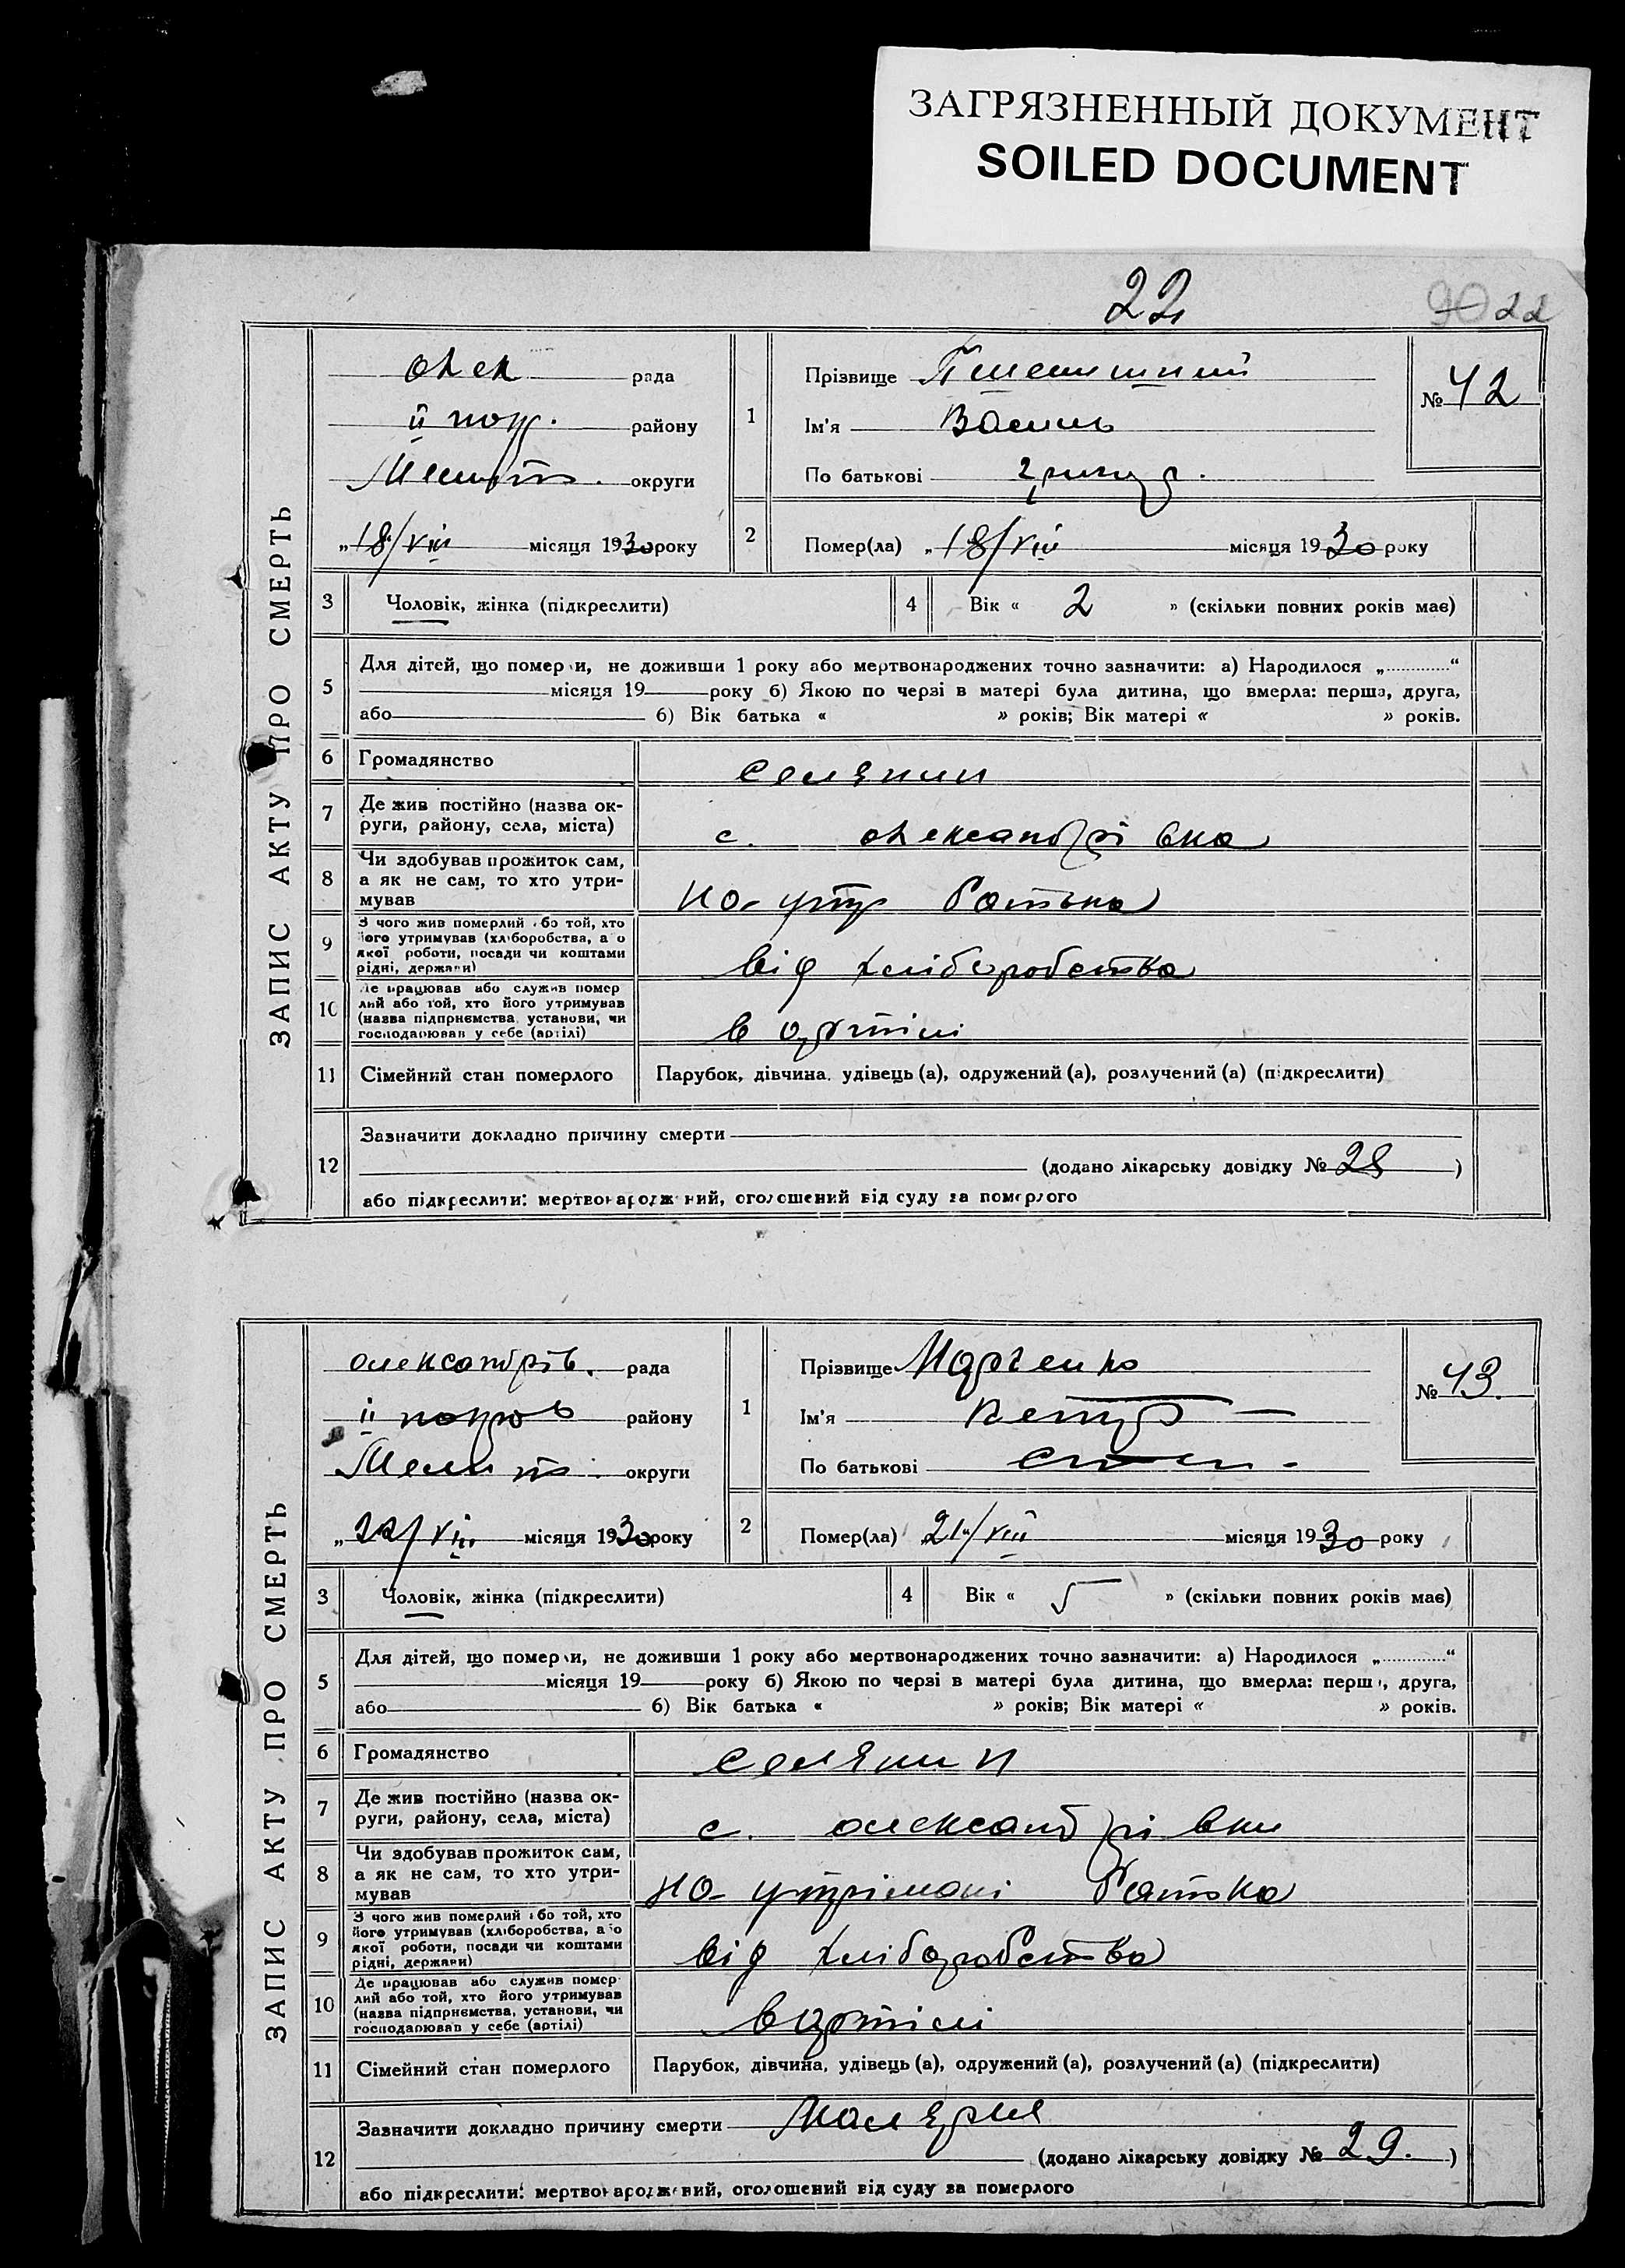 ЗАГРЯЗНЕННЫЙ ДОКУМЕНТ
SOILED DOCUMENT
22
90 22
ЗАПИС АКТУ ПРО СМЕРТЬ
Олек рада
II покр. району
Мелит. округи
„18/VIII місяця 1930 року
1
Прізвище
Ім'я Василь
По батькові Григор.
№ 42
2 Помер(ла) „18/VIII місяця 1930 року
3 Чоловік, жінка (підкреслити)
4 Вік « 2 » (скільки повних років має)
5 Для дітей, що померли, не доживши 1 року або мертвонароджених точно зазначити: а) Народилося „............“
місяця 19 року б) Якою по черзі в матері була дитина, що вмерла: перша, друга,
або б) Вік батька « » років; Вік матері « » років.
6 Громадянство селянин
7 Де жив постійно (назва ок-
руги, району, села, міста) с. Олександрівка
8 Чи здобував прожиток сам,
а як не сам, то хто утри-
мував на утр батька
9 З чого жив померлий або той, хто
його утримував (хліборобства, або
якої роботи, посади чи коштами
рідні, держави) від хліборобства
10 Де працював або служив помер
лий або той, хто його утримував
(назва підприємства, установи, чи
господарював у себе (артілі) в артілі
11 Сімейний стан померлого Парубок, дівчина, удівець (а), одружений (а), розлучений (а) (підкреслити)
12 Зазначити докладно причину смерти
(додано лікарську довідку № 28 )
або підкреслити: мертвонароджений, оголошений від суду за померлого
ЗАПИС АКТУ ПРО СМЕРТЬ
Олександрів. рада
II покров району
Мелит. округи
„22/VIII місяця 1930 року
1
Прізвище Марченко
Ім'я Петро
По батькові
№ 43.
2 Помер(ла) „21/VIII місяця 1930 року
3 Чоловік, жінка (підкреслити)
4 Вік « 5 » (скільки повних років має)
5 Для дітей, що померли, не доживши 1 року або мертвонароджених точно зазначити: а) Народилося „............“
місяця 19 року б) Якою по черзі в матері була дитина, що вмерла: перша, друга,
або б) Вік батька « » років; Вік матері « » років.
6 Громадянство селянин
7 Де жив постійно (назва ок-
руги, району, села, міста) с. Олександрівки
8 Чи здобував прожиток сам,
а як не сам, то хто утри-
мував на утрімані батька
9 З чого жив померлий або той, хто
його утримував (хліборобства, або
якої роботи, посади чи коштами
рідні, держави) від хліборобства
10 Де працював або служив помер
лий або той, хто його утримував
(назва підприємства, установи, чи
господарював у себе (артілі) в артілі
11 Сімейний стан померлого Парубок, дівчина, удівець (а), одружений (а), розлучений (а) (підкреслити)
12 Зазначити докладно причину смерти Малярия
(додано лікарську довідку № 29. )
або підкреслити: мертвонароджений, оголошений від суду за померлого